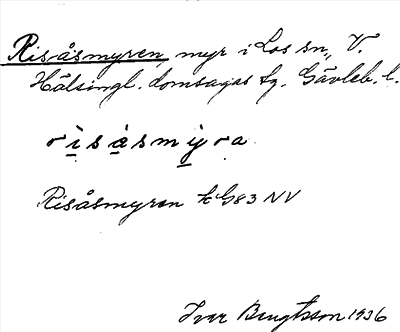 Risåsmyren, myr i Los sn, V.
Hälsingl. domsagas tg. Gävleb. l.
rìsåsmỳra
Risåsmyren k G83 NV
Ivar Bengtsson 1936